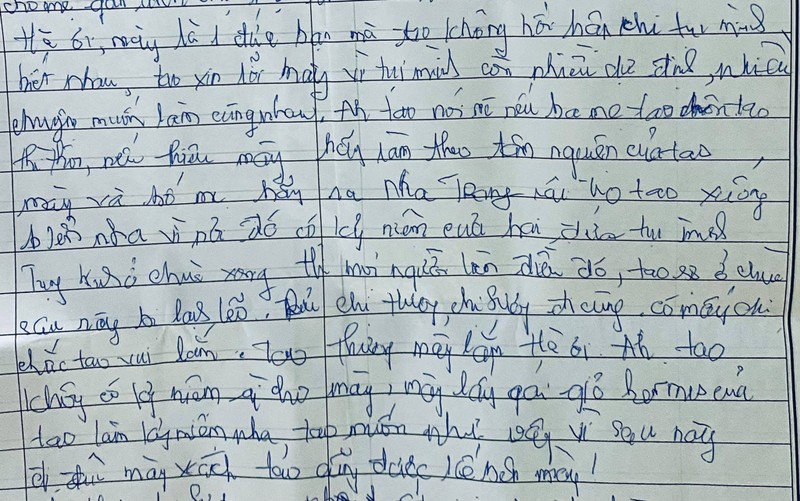 cho mẹ
Hà ơi, mày là 1 đứa bạn mà tao không hối hận khi tụi mình
biết nhau, tao xin lỗi mày vì tụi mình còn nhiều dự định, nhiều
chuyện muốn làm cùng nhau. Ah tao nói nè nếu ba mẹ tao chôn tao
thì thôi, nếu thiêu mày hãy làm theo tâm nguyện của tao
mày và bố mẹ hãy ra Nha Trang rải tro tao xuống
biển nha vì nơi đó có kỷ niệm của hai đứa tụi mình
chùa xong thì mọi người làm điều đó, tao sợ ở chùa
sau này bị lạnh lẽo. chị thuy, chị đi cùng có mấy chị
chắc tao vui lắm. tao thương mày lắm Hà ơi. Ah tao
không có kỷ niệm gì cho mày, mày lấy cái giỏ hermis của
tao làm kỷ niệm nha tao muốn như vậy vì sau này
đi đâu mày xách tao cũng được kế bên mày!